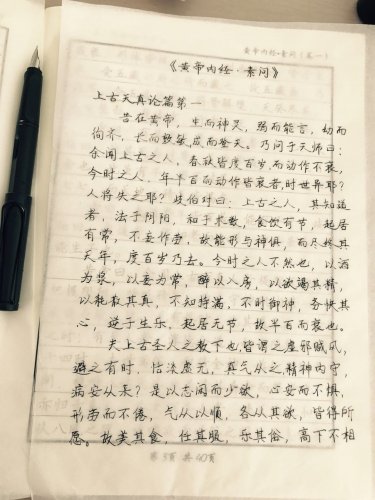 黄帝内经·素问(卷一)
《黄帝内经·素问》
上古天真论篇第一
昔在黄帝，生而神灵，弱而能言，幼而
徇齐，长而敦敏，成而登天。乃问于天师曰：
余闻上古之人，春秋皆度百岁，而动作不衰，
今时之人，年半百而动作皆衰者，时世异耶？
人将失之耶？岐伯对曰：上古之人，其知道
者，法于阴阳，和于术数，食饮有节，起居
有常，不妄作劳，故能形与神俱，而尽终其
天年，度百岁乃去。今时之人不然也，以酒
为浆，以妄为常，醉以入房，以欲竭其精，
以耗散其真，不知持满，不时御神，务快其
心，逆于生乐，起居无节，故半百而衰也。
夫上古圣人之教下也，皆谓之虚邪贼风，
避之有时，恬淡虚无，真气从之，精神内守，
病安从来？是以志闲而少欲，心安而不惧，
形劳而不倦，气从以顺，各从其欲，皆得所
愿。故美其食，任其服，乐其俗，高下不相
第1页 共40页